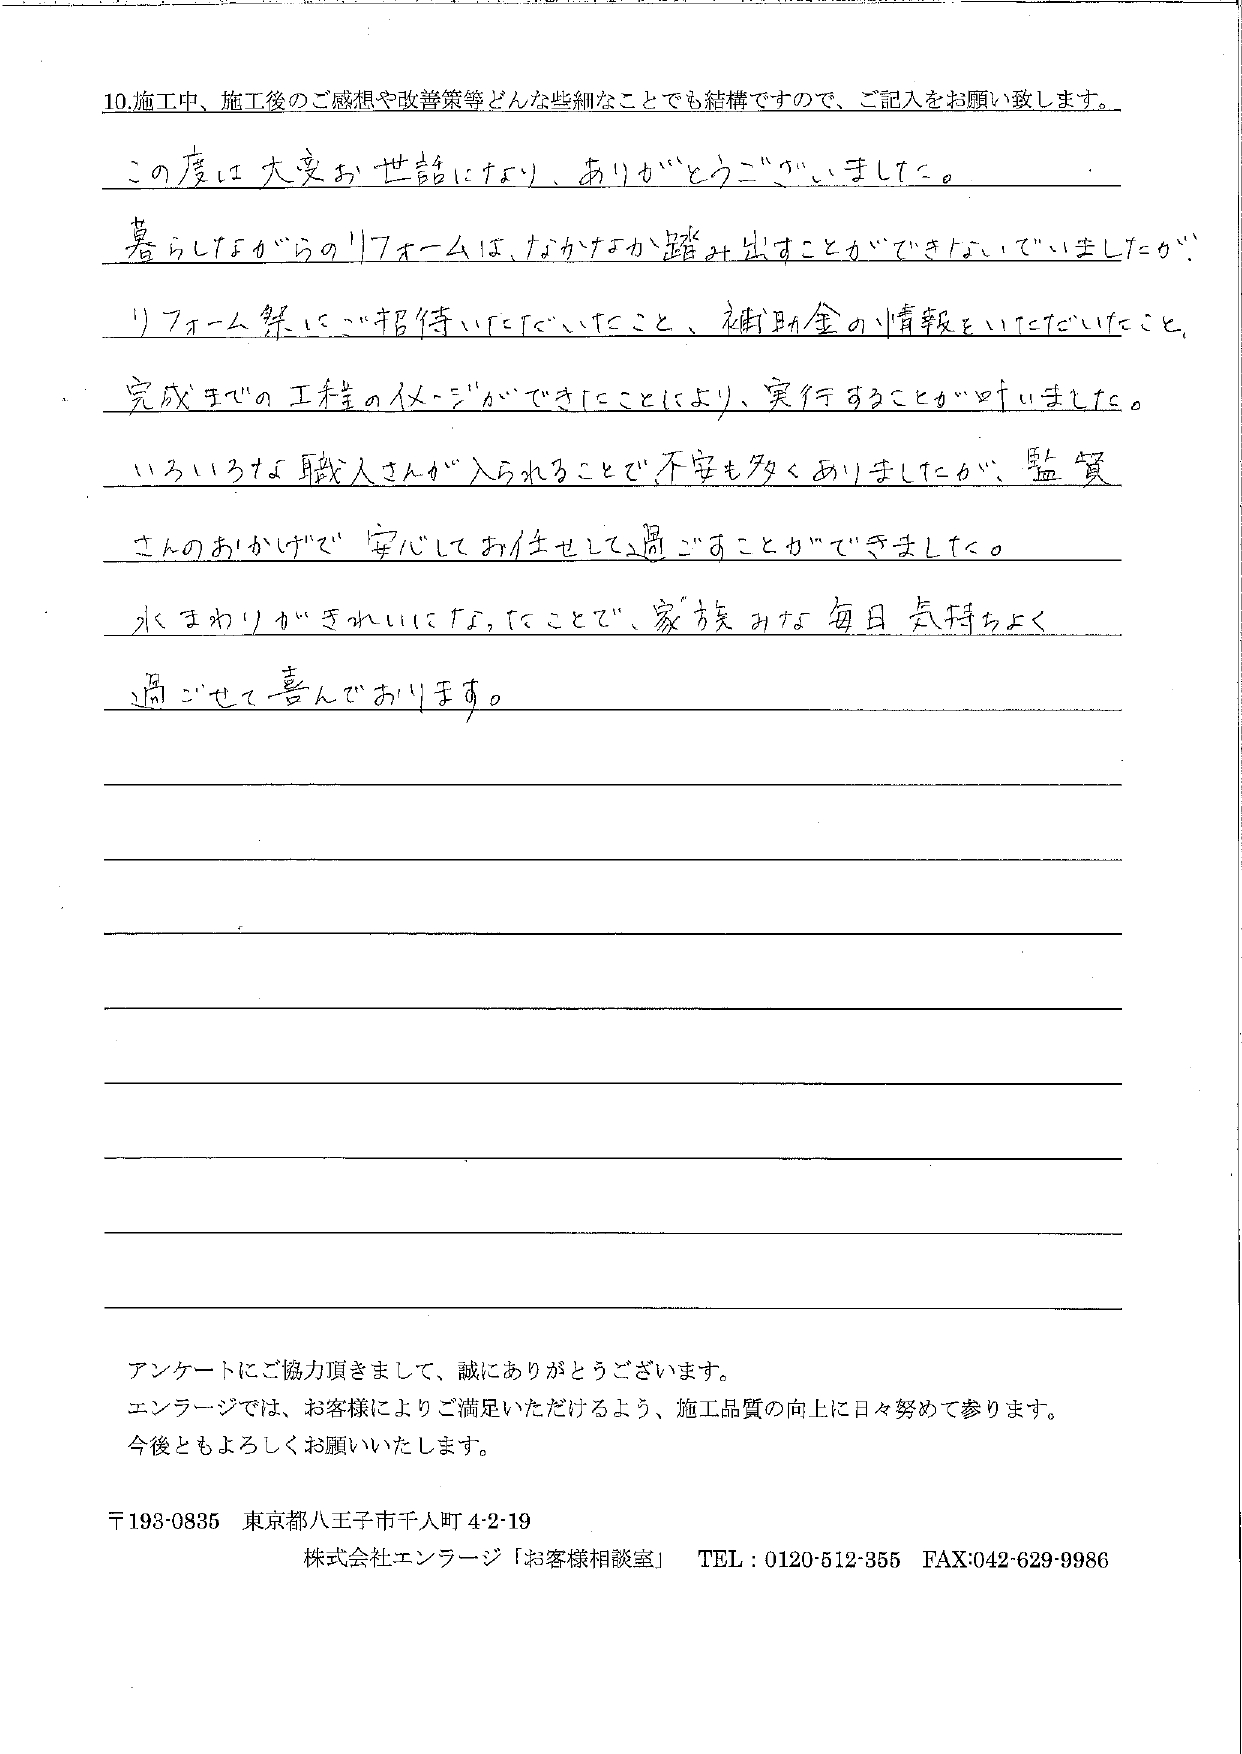 10.施工中、施工後のご感想や改善策等どんな些細なことでも結構ですので、ご記入をお願い致します。
この度は大変お世話になり、ありがとうございました。
暮らしながらのリフォームは、なかなか踏み出すことができないでいましたが、
リフォーム祭にご招待いただいたこと、補助金の情報をいただいたこと、
完成までの工程のイメージができたことにより、実行することが叶いました。
いろいろな職人さんが入られることで不安も多くありましたが、監督
さんのおかげで安心してお任せして過ごすことができました。
水まわりがきれいになったことで、家族みな毎日気持ちよく
過ごせて喜んでおります。
アンケートにご協力頂きまして、誠にありがとうございます。
エンラージでは、お客様によりご満足いただけるよう、施工品質の向上に日々努めて参ります。
今後ともよろしくお願いいたします。
〒193-0835 東京都八王子市千人町 4-2-19
株式会社エンラージ「お客様相談室」 TEL：0120-512-355 FAX:042-629-9986